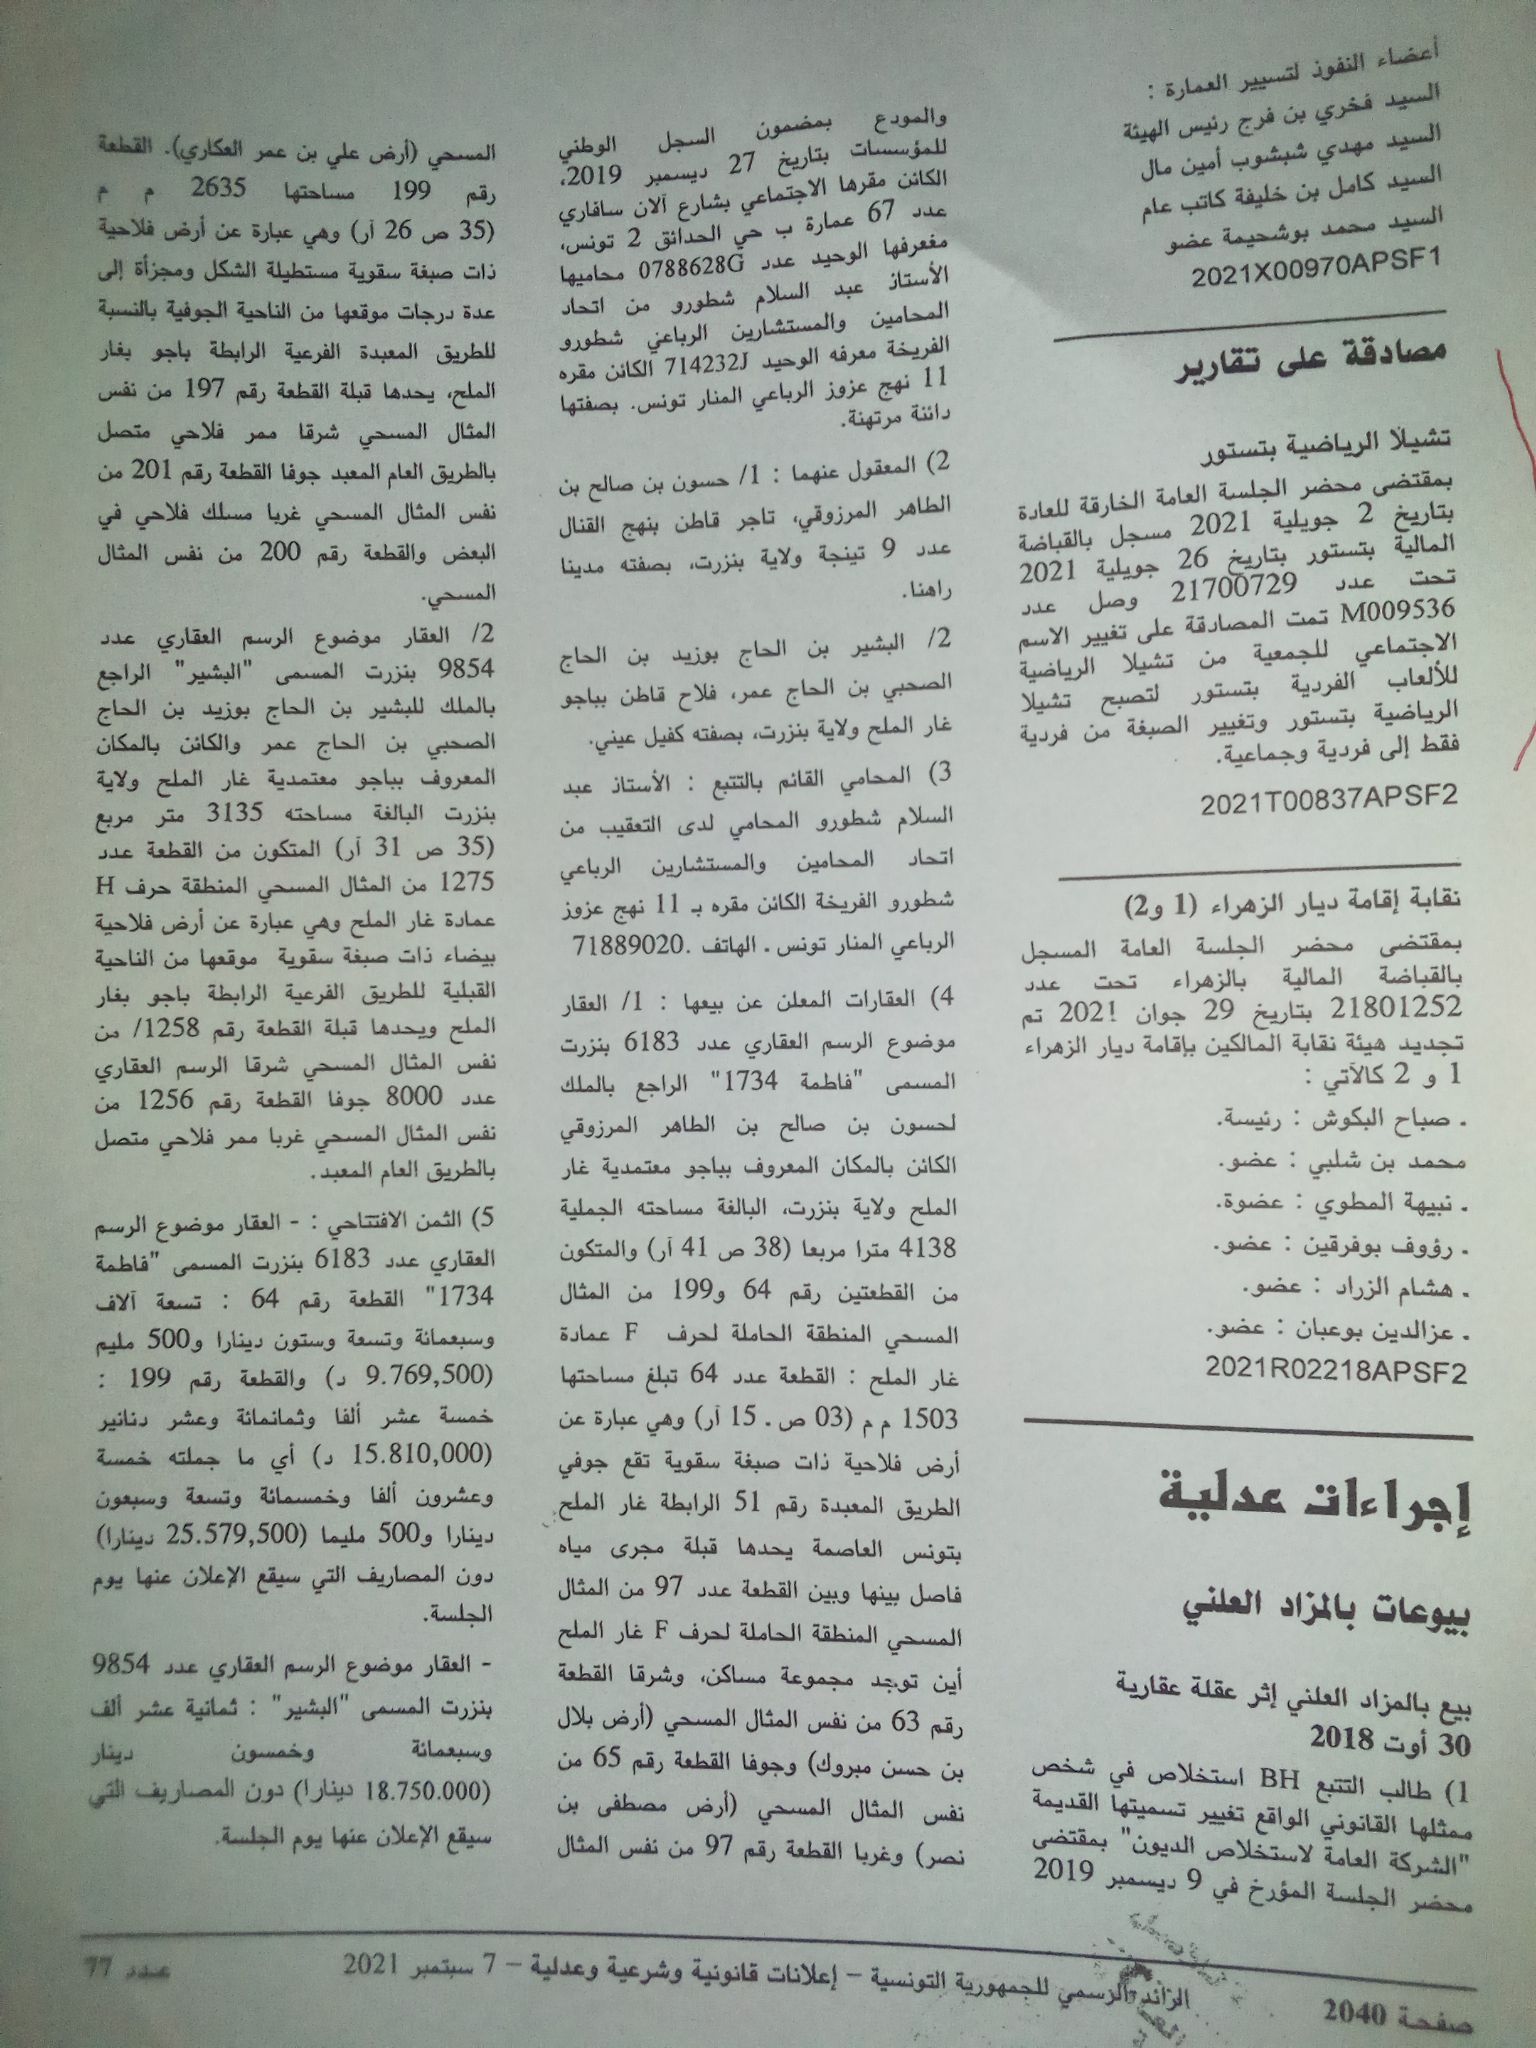 أعضاء النفوذ لتسيير العمارة :
السيد فخري بن فرج رئيس الهيئة
السيد مهدي شبشوب أمين مال
السيد كامل بن خليفة كاتب عام
السيد محمد بوشحيمة عضو
2021X00970APSF1
مصادقة على تقارير
تشيلا الرياضية بتستور
بمقتضى محضر الجلسة العامة الخارقة للعادة
بتاريخ 2 جويلية 2021 مسجل بالقباضة
المالية بتستور بتاريخ 26 جويلية 2021
تحت عدد 21700729 وصل عدد
M009536 تمت المصادقة على تغيير الاسم
الاجتماعي للجمعية من تشيلا الرياضية
للألعاب الفردية بتستور لتصبح تشيلا
الرياضية بتستور وتغيير الصبغة من فردية
فقط إلى فردية وجماعية.
2021T00837APSF2
نقابة إقامة ديار الزهراء (1 و2)
بمقتضى محضر الجلسة العامة المسجل
بالقباضة المالية بالزهراء تحت عدد
21801252 بتاريخ 29 جوان 2021 تم
تجديد هيئة نقابة المالكين بإقامة ديار الزهراء
1 و 2 كالآتي :
. صباح البكوش : رئيسة.
محمد بن شلبي : عضو.
. نبيهة المطوي : عضوة.
. رؤوف بوفرقين : عضو.
. هشام الزراد : عضو.
. عزالدين بوعبان : عضو.
2021R02218APSF2
إجراءات عدلية
بيوعات بالمزاد العلني
بيع بالمزاد العلني إثر عقلة عقارية
30 أوت 2018
1) طالب التتبع BH استخلاص في شخص
ممثلها القانوني الواقع تغيير تسميتها القديمة
"الشركة العامة لاستخلاص الديون" بمقتضى
محضر الجلسة المؤرخ في 9 ديسمبر 2019
والمودع بمضمون السجل الوطني
للمؤسسات بتاريخ 27 ديسمبر 2019،
الكائن مقرها الاجتماعي بشارع آلان سافاري
عدد 67 عمارة ب حي الحدائق 2 تونس،
مغعرفها الوحيد عدد 0788628G محاميها
الأستاذ عبد السلام شطورو من اتحاد
المحامين والمستشارين الرباعي شطورو
الفريخة معرفه الوحيد 714232J الكائن مقره
11 نهج عزوز الرباعي المنار تونس. بصفتها
دائنة مرتهنة.
2) المعقول عنهما : 1/ حسون بن صالح بن
الطاهر المرزوقي، تاجر قاطن بنهج القنال
عدد 9 تينجة ولاية بنزرت، بصفته مدينا
راهنا.
2/ البشير بن الحاج بوزيد بن الحاج
الصحبي بن الحاج عمر، فلاح قاطن بباجو
غار الملح ولاية بنزرت، بصفته كفيل عيني.
3) المحامي القائم بالتتبع : الأستاذ عبد
السلام شطورو المحامي لدى التعقيب من
اتحاد المحامين والمستشارين الرباعي
شطورو الفريخة الكائن مقره بـ 11 نهج عزوز
الرباعي المنار تونس . الهاتف .71889020
4) العقارات المعلن عن بيعها : 1/ العقار
موضوع الرسم العقاري عدد 6183 بنزرت
المسمى "فاطمة 1734" الراجع بالملك
لحسون بن صالح بن الطاهر المرزوقي
الكائن بالمكان المعروف بباجو معتمدية غار
الملح ولاية بنزرت، البالغة مساحته الجملية
4138 مترا مربعا (38 ص 41 آر) والمتكون
من القطعتين رقم 64 و199 من المثال
المسحي المنطقة الحاملة لحرف F عمادة
غار الملح : القطعة عدد 64 تبلغ مساحتها
1503 م م (03 ص . 15 آر) وهي عبارة عن
أرض فلاحية ذات صبغة سقوية تقع جوفي
الطريق المعبدة رقم 51 الرابطة غار الملح
بتونس العاصمة يحدها قبلة مجرى مياه
فاصل بينها وبين القطعة عدد 97 من المثال
المسحي المنطقة الحاملة لحرف F غار الملح
أين توجد مجموعة مساكن، وشرقا القطعة
رقم 63 من نفس المثال المسحي (أرض بلال
بن حسن مبروك) وجوفا القطعة رقم 65 من
نفس المثال المسحي (أرض مصطفى بن
نصر) وغربا القطعة رقم 97 من نفس المثال
المسحي (أرض علي بن عمر العكاري). القطعة
رقم 199 مساحتها 2635 م م
(35 ص 26 آر) وهي عبارة عن أرض فلاحية
ذات صبغة سقوية مستطيلة الشكل ومجزأة إلى
عدة درجات موقعها من الناحية الجوفية بالنسبة
للطريق المعبدة الفرعية الرابطة باجو بغار
الملح، يحدها قبلة القطعة رقم 197 من نفس
المثال المسحي شرقا ممر فلاحي متصل
بالطريق العام المعبد جوفا القطعة رقم 201 من
نفس المثال المسحي غربا مسلك فلاحي في
البعض والقطعة رقم 200 من نفس المثال
المسحي.
2/ العقار موضوع الرسم العقاري عدد
9854 بنزرت المسمى "البشير" الراجع
بالملك للبشير بن الحاج بوزيد بن الحاج
الصحبي بن الحاج عمر والكائن بالمكان
المعروف بباجو معتمدية غار الملح ولاية
بنزرت البالغة مساحته 3135 متر مربع
(35 ص 31 آر) المتكون من القطعة عدد
1275 من المثال المسحي المنطقة حرف H
عمادة غار الملح وهي عبارة عن أرض فلاحية
بيضاء ذات صبغة سقوية موقعها من الناحية
القبلية للطريق الفرعية الرابطة باجو بغار
الملح ويحدها قبلة القطعة رقم 1258/ من
نفس المثال المسحي شرقا الرسم العقاري
عدد 8000 جوفا القطعة رقم 1256 من
نفس المثال المسحي غربا ممر فلاحي متصل
بالطريق العام المعبد.
5) الثمن الافتتاحي : - العقار موضوع الرسم
العقاري عدد 6183 بنزرت المسمى "فاطمة
1734" القطعة رقم 64 : تسعة آلاف
وسبعمائة وتسعة وستون دينارا و500 مليم
(9.769,500 د) والقطعة رقم 199 :
خمسة عشر ألفا وثمانمائة وعشر دنانير
(15.810,000 د) أي ما جملته خمسة
وعشرون ألفا وخمسمائة وتسعة وسبعون
دينارا و500 مليما (25.579,500 دينارا)
دون المصاريف التي سيقع الإعلان عنها يوم
الجلسة.
- العقار موضوع الرسم العقاري عدد 9854
بنزرت المسمى "البشير" : ثمانية عشر ألف
وسبعمائة وخمسون دينار
(18.750.000 دينارا) دون المصاريف التي
سيقع الإعلان عنها يوم الجلسة.
صفحة 2040
الرائد الرسمي للجمهورية التونسية – إعلانات قانونية وشرعية وعدلية – 7 سبتمبر 2021
عدد 77